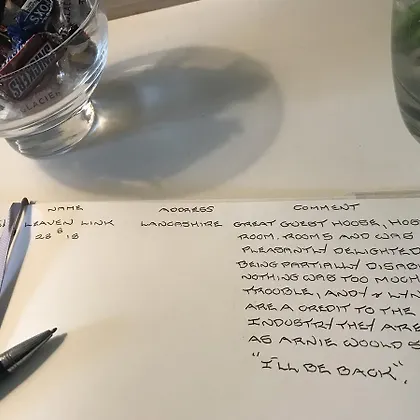 NAME ADDRESS COMMENT
LEAVEN LINK LANCASHIRE GREAT GUEST HOUSE, HOS
28 8 18 ROOM. ROOM 5 AND WAS
PLEASANTLY DELIGHTED
BEING PARTIALLY DISAB
NOTHING WAS TOO MUCH
TROUBLE, ANDY & LYN
ARE A CREDIT TO THE
INDUSTRY THEY ARE
AS ARNIE WOULD S
"I'LL BE BACK".
GLACIER